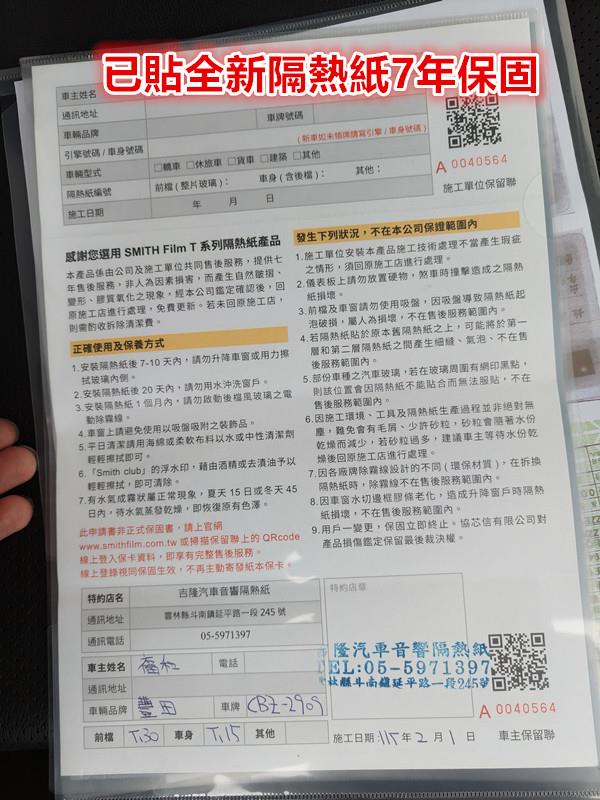 已貼全新隔熱紙7年保固
車主姓名
通訊地址 車牌號碼
車輛品牌
引擎號碼 / 車身號碼 ( 新車如未領牌請寫引擎 / 車身號碼 )
車輛型式 □轎車 □休旅車 □貨車 □建築 □其他
隔熱紙編號 前檔 ( 整片玻璃 )： 車身 ( 含後檔 )： 其他：
施工日期 年 月 日
A 0040564
施工單位保留聯
感謝您選用 SMITH Film T 系列隔熱紙產品
本產品係由公司及施工單位共同售後服務，提供七
年售後服務，非人為因素損害，而產生自然皺摺、
變形、膠質氧化之現象，經本公司鑑定確認後，回
原施工店進行處理，免費更新。若未回原施工店，
則需酌收拆除清潔費。
正確使用及保養方式
1.安裝隔熱紙後 7-10 天內，請勿升降車窗或用力擦
拭玻璃內側。
2.安裝隔熱紙後 20 天內，請勿用水沖洗窗戶。
3.安裝隔熱紙 1 個月內，請勿啟動後檔風玻璃之電
動除霧線。
4.車窗上請避免使用以吸盤吸附之裝飾品。
5.平日清潔請用海綿或柔軟布料以水或中性清潔劑
輕輕擦拭即可。
6.「Smith club」的浮水印，藉由酒精或去漬油予以
輕輕擦拭，即可清除。
7.有水氣成霧狀屬正常現象，夏天 15 日或冬天 45
日內，待水氣蒸發乾燥，即恢復原有色澤。
此申請書非正式保固書，請上官網
www.smithfilm.com.tw 或掃描保留聯上的 QRcode
線上登入保卡資料，即享有完整售後服務。
線上登錄視同保固生效，不再主動寄發紙本保卡。
發生下列狀況，不在本公司保證範圍內
1.施工單位安裝本產品施工技術處理不當產生瑕疵
之情形，須回原施工店進行處理。
2.儀表板上請勿放置硬物，煞車時撞擊造成之隔熱
紙損壞。
3.前檔及車窗請勿使用吸盤，因吸盤導致隔熱紙起
泡破損，屬人為損壞，不在售後服務範圍內。
4.若隔熱紙貼於原本舊隔熱紙之上，可能將於第一
層和第二層隔熱紙之間產生細縫、氣泡、不在售
後服務範圍內。
5.部份車種之汽車玻璃，若在玻璃周圍有網印黑點，
則該位置會因隔熱紙不能貼合而無法服貼，不在
售後服務範圍內。
6.因施工環境、工具及隔熱紙生產過程並非絕對無
塵，難免會有毛屑、少許砂粒，砂粒會隨著水份
乾燥而減少，若砂粒過多，建議車主等待水份乾
燥後回原施工店進行處理。
7.因各廠牌除霧線設計的不同 ( 環保材質 )，在拆換
隔熱紙時，除霧線不在售後服務範圍內。
8.因車窗水切邊框膠條老化，造成升降窗戶時隔熱
紙損壞，不在售後服務範圍內。
9.用戶一變更，保固立即終止。協芯信有限公司對
產品損傷鑑定保留最後裁決權。
特約店名 吉隆汽車音響隔熱紙
通訊地址 雲林縣斗南鎮延平路一段 245 號
通訊電話 05-5971397
特約店章
隆汽車音響隔熱紙
TEL:05-5971397
林縣斗南鎮延平路一段245號
車主姓名 福和 電話
通訊地址
車輛品牌 豐田 車牌 CBZ-2909
前檔 T30 車身 T15 其他
A 0040564
施工日期：115年 2 月 1 日 車主保留聯